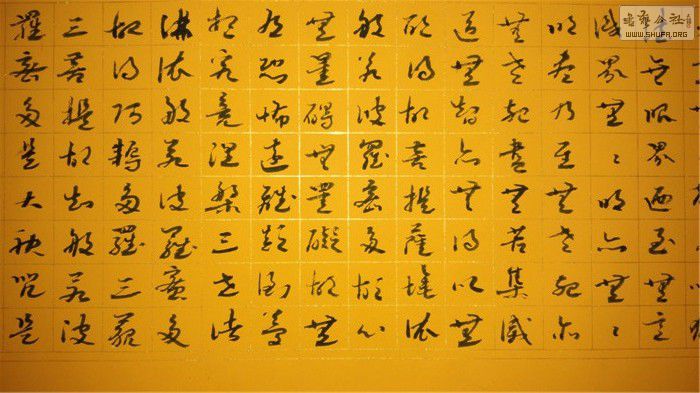 無眼界迺至無意
識界無〻明亦無〻
明盡乃至無老死亦
無老死盡無苦集滅
道無智亦無得以無
所得故菩提薩埵依
般若波羅蜜多故心
無罣碍無罣礙故無
有恐怖遠離顛倒夢
想究竟涅槃三世諸
佛依般若波羅蜜多
故得阿耨多羅三藐
三菩提故知般若波
羅蜜多是大神咒是
書藝公社
WWW.SHUFA.ORG